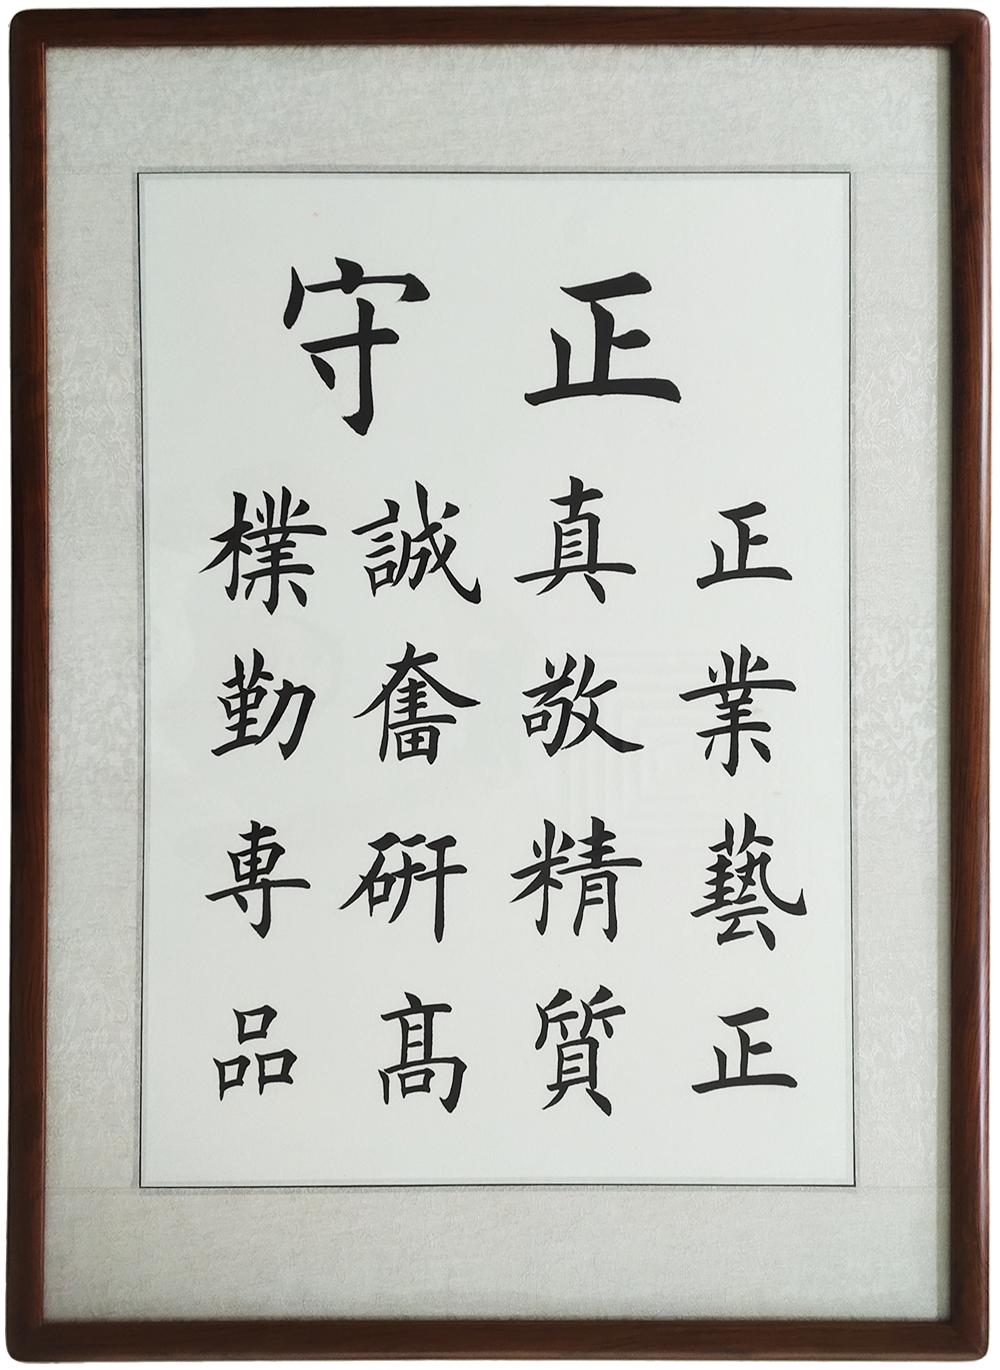 正守
正業藝正
真敬精質
誠奮硏髙
樸勤専品